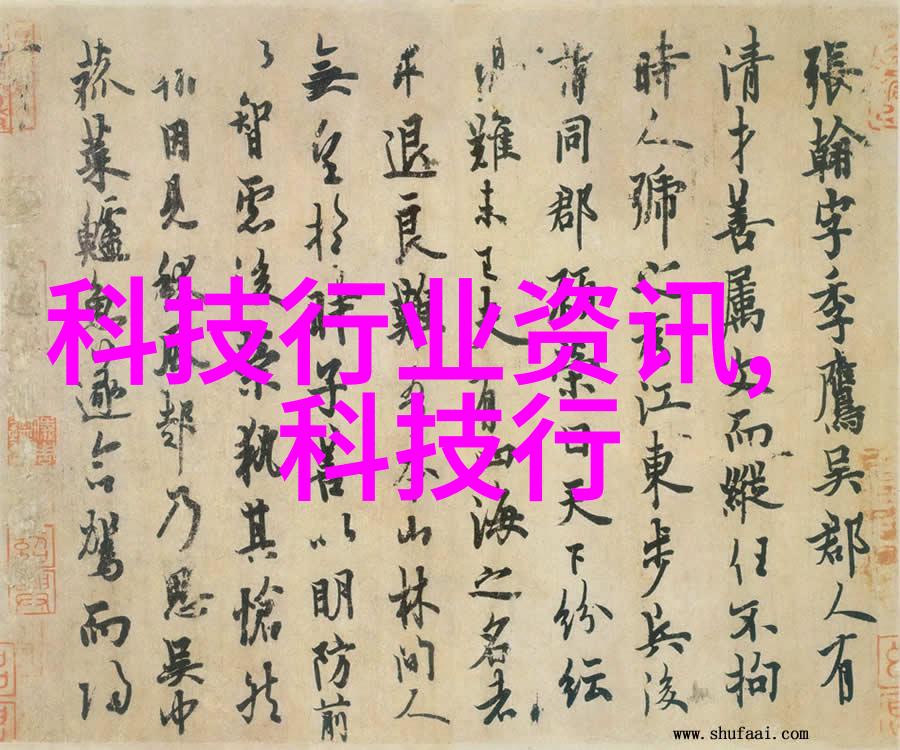 張翰字季鷹吳郡人有
清才善屬文而縱任不拘
時人號之為江東步兵後
謂同郡顧榮曰天下紛紜
禍難未已夫有四海之名者
求退良難吾本山林間人
無望於時子善以明防前
以智慮後榮執其愴然
翰因見秋風起乃思吳中
菰菜鱸魚遂命駕而歸
科技行业资讯,
科技行
www.shufaai.com